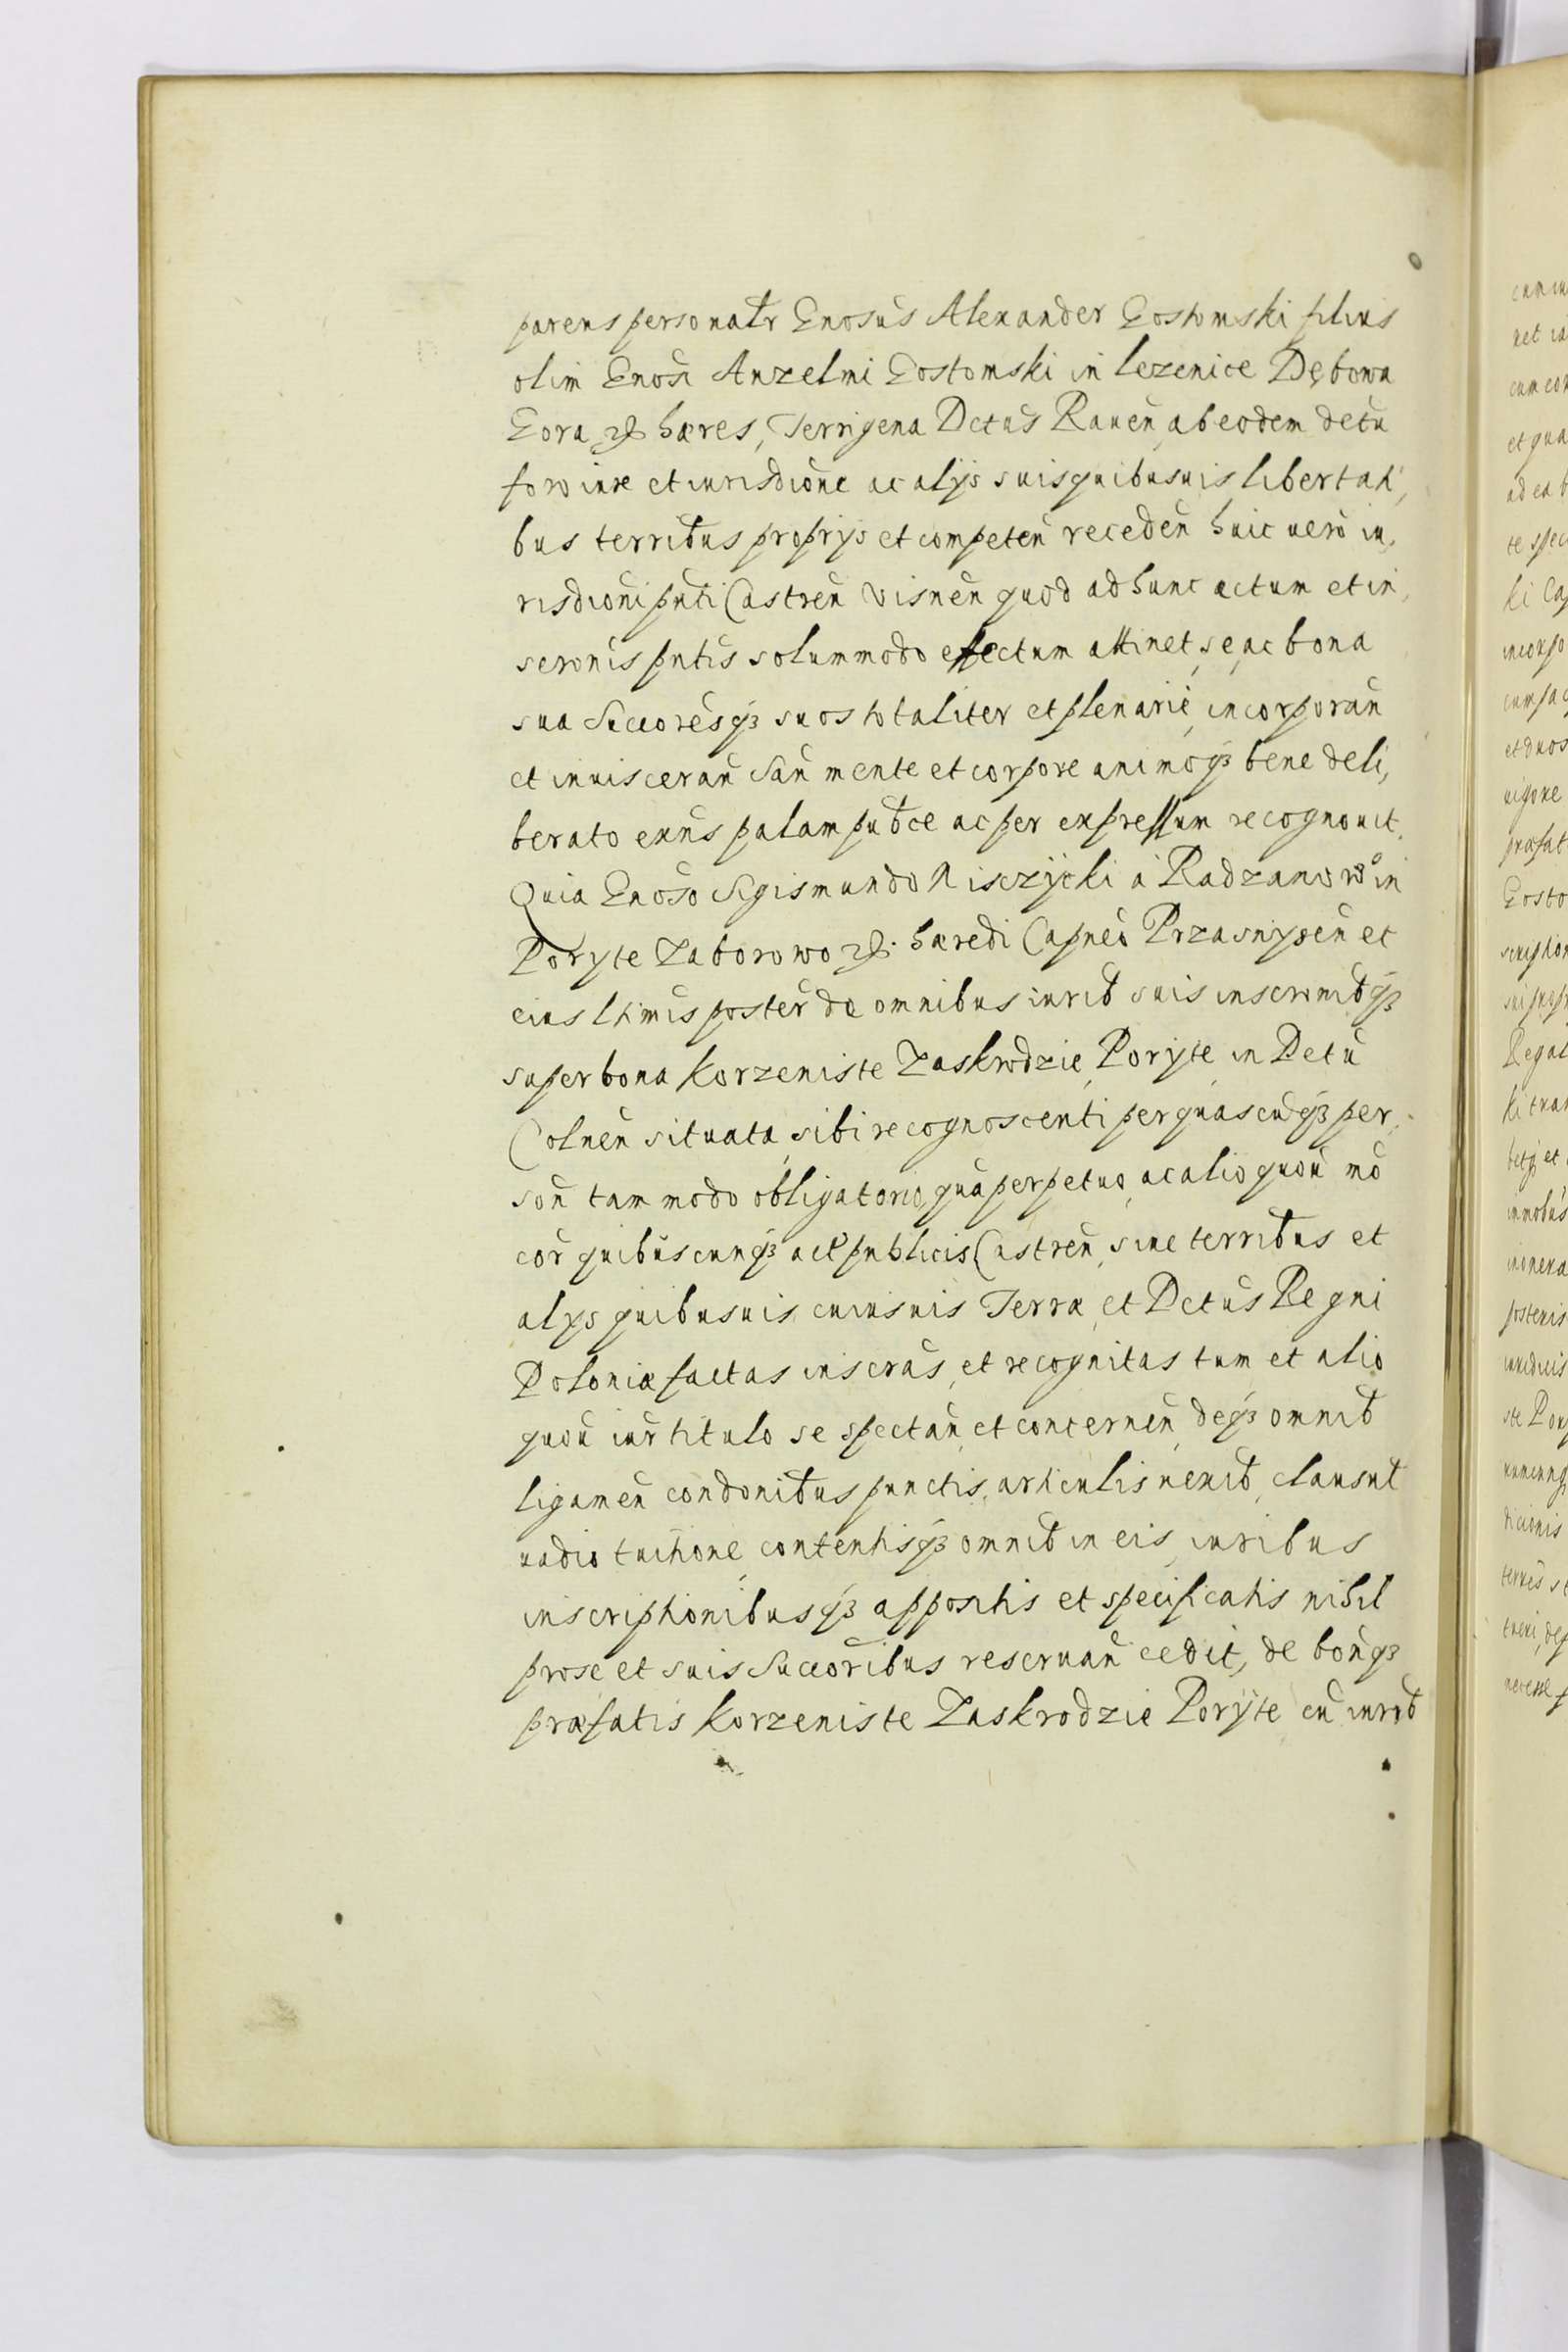 parens personalr Gnosus Alexander Gostomski filius
olim Gnosi Anzelmi Gostomski in lezenice Dębowa
Gora &c hæres, Terrigena Dctus Rauen, ab eodem dctu
foro iure et iurisdione ac alijs suis quibusuis libertati,
bus terribus proprijs et competen receden huic uero iu,
risdioni pnti Castren Visnen quod ad hunc actum et in,
scronis pntis solummodo effectum attinet, se, ac bona
sua Succoresq3 suos totaliter et plenarie, incorporan
et inuisceran San mente et corpore animoq3 bene deli,
berato exns palam pubce ac per expressum recognouit.
Quia Gnoso Sigismundo Nisczycki a Radzanowo in
Poryte Zaborowo &c. hæredi Capneo Przasnysen et
eius ltimis poster de omnibus iurib suis inscronibq3
super bona Korzeniste Zaskrodzie, Poryte, in Dctu
Colnen situata, sibi recognoscenti per quascuq3 per,
son tam modo obligatorio, qua perpetuo, ac alio quou mo
cor quibuscunq3 act publicis Castren, siue terribus et
alijs quibusuis cuiusuis Terræ, et Dctus Regni
Poloniæ factas inscras, et recognitas tum et alio
quou iur titulo se spectan, et concernen, deq3 omnib
ligamen condonibus punctis, articulis nexib, clausul
uadio tuitione, contentisq3 omnib in eis, iuribus
inscriptionibusq3 appositis et specificatis nihil
pro se et suis Succoribus reseruan cedit, de bonq3
præfatis Korzeniste Zaskrodzie Poryte cu iurib